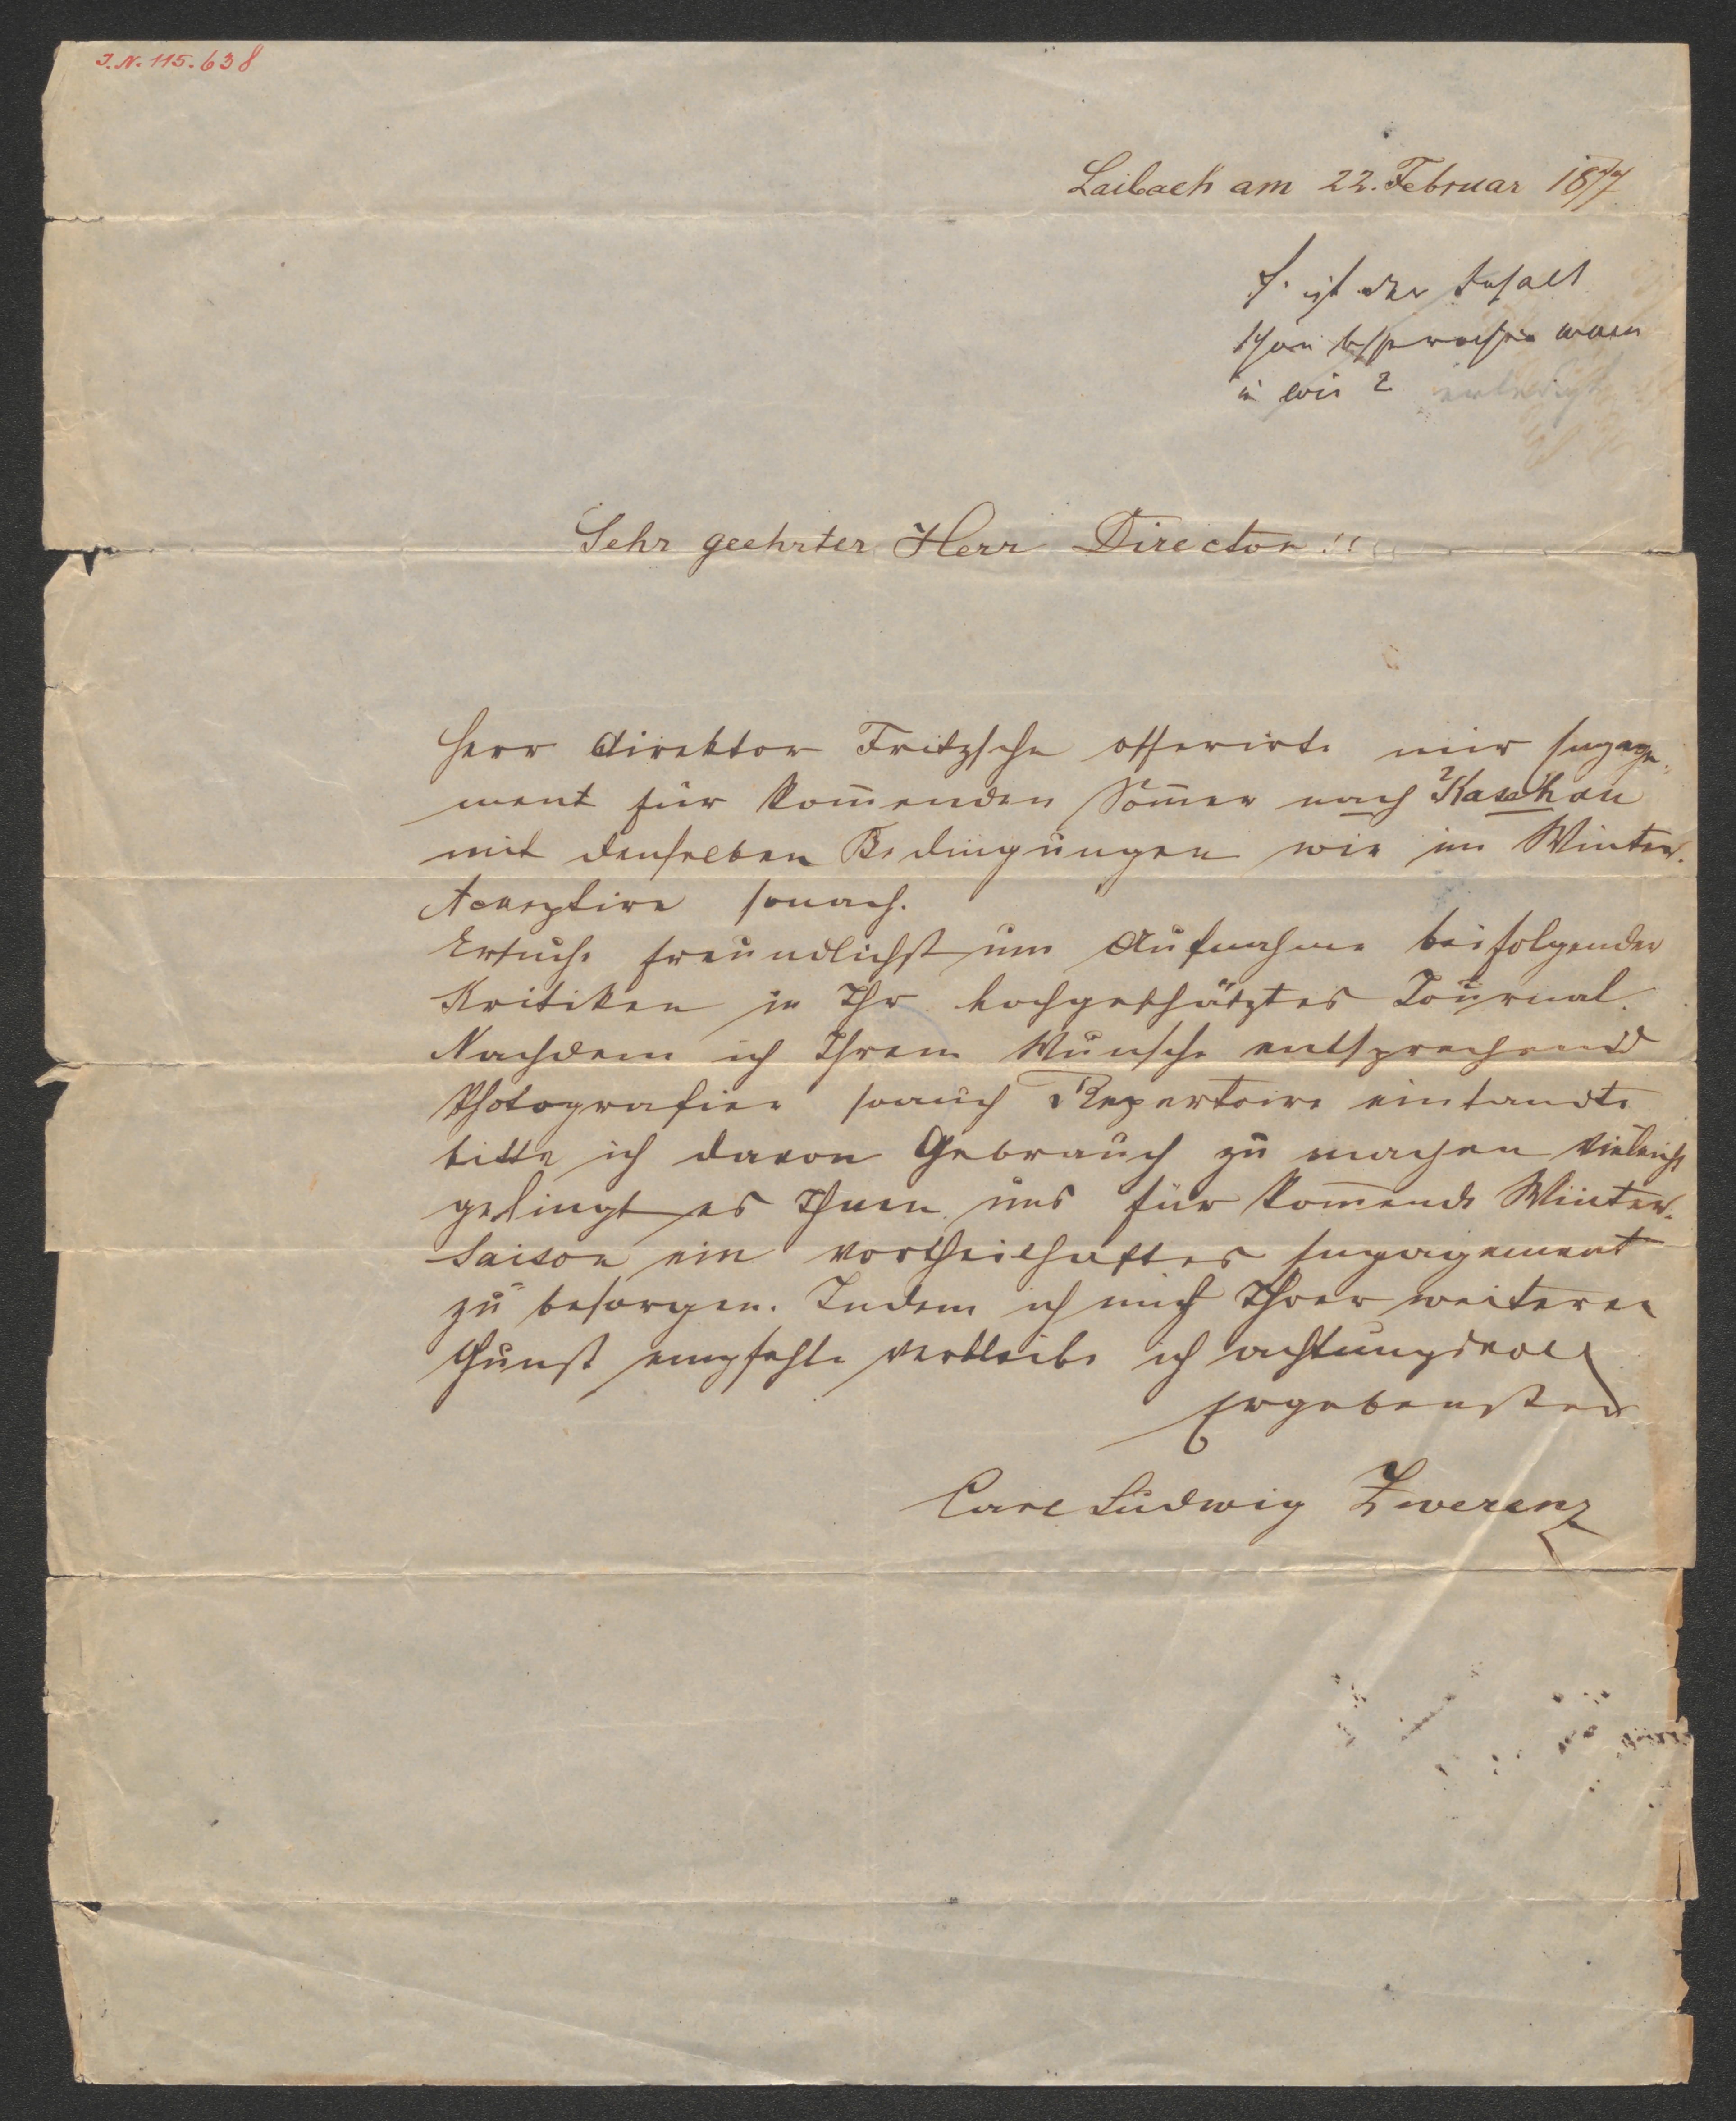 J.N. 115.638
Laibach am 22. Februar 1877
ist der Inhalt
schon besprochen
in 2 erledigt
Sehr geehrter Herr Director!!
Herr Direktor Fritzsche offerirte mir Engage-
ment für kom̄enden Som̄er nach Kaschau
mit denselben Bedingungen wie im Winter.
Acceptire sonach.
Ersuche freundlichst um Aufnahme beifolgender
Kritiken in Ihr hochgeschätztes Journal.
Nachdem ich Ihrem Wunsche entsprechend
Photografien sowie Repertoire einsandte
bitte ich davon Gebrauch zu machen vieleicht
gelingt es Ihnen uns für kom̄ende Winter-
Saison ein vortheilhaftes Engagement
zu besorgen. Indem ich mich Ihrer weiteren
Gunst empfehle verbleibe ich achtungsvoll
Ergebenster
Carl Ludwig Zwerenz